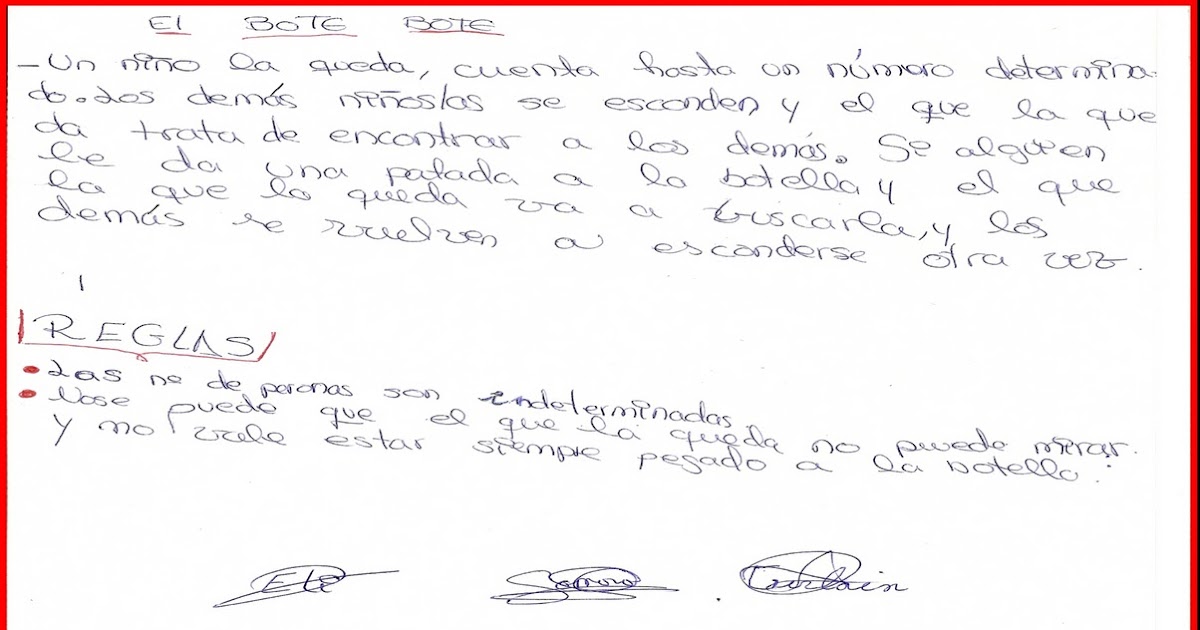 El BOTE BOTE
- Un niño la queda, cuenta hasta un número determina-
do. Los demás niños/as se esconden y el que la que
da trata de encontrar a los demás. Se alguien
le da una patada a la botella y el que
la que la queda va a buscarla, y los
demás se vuelven a esconderse otra vez.
REGLAS
• Las nº de peronas son indeterminadas.
• Nose puede que el que la queda no puede mirar.
y no vale estar siempre pegado a la botella.